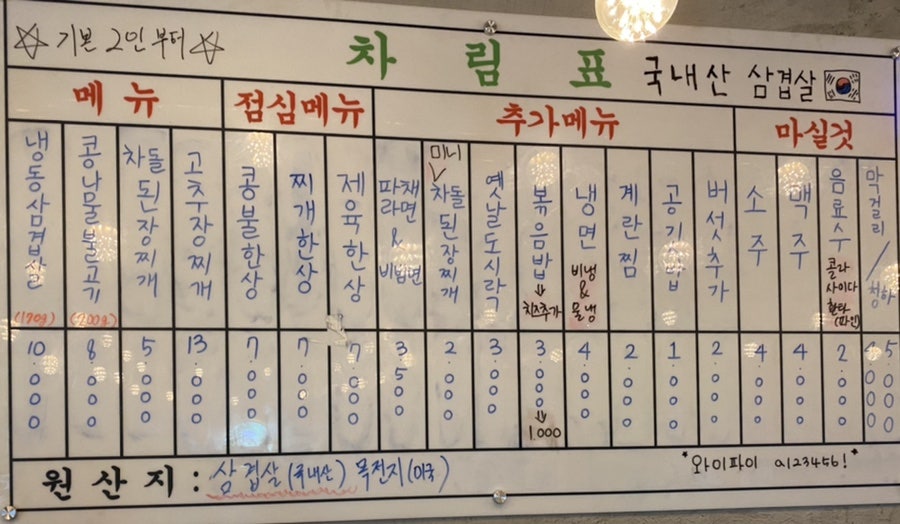 ☆기본 2인부터☆
차림표
국내산 삼겹살
메뉴
점심메뉴
추가메뉴
마실것
냉동삼겹살
(190g)
10.000
콩나물불고기
(200g)
8.000
차돌된장찌개
5.000
고추장찌개
13.000
콩불한상
7.000
찌개한상
7.000
제육한상
7.000
파채라면
&
비빔면
3.500
미니
차돌된장찌개
2.000
옛날도시락
3.000
볶음밥
↓
치즈추가
3.000
↓
1000
냉면
비냉
&
물냉
4.000
계란찜
2.000
공기밥
1.000
버섯추가
2.000
소주
4.000
맥주
4.000
음료수
콜라
사이다
환타
(파인)
2.000
막걸리/청하
4.000
5.000
원산지: 삼겹살(국내산) 목전지(미국)
*와이파이 a123456!*